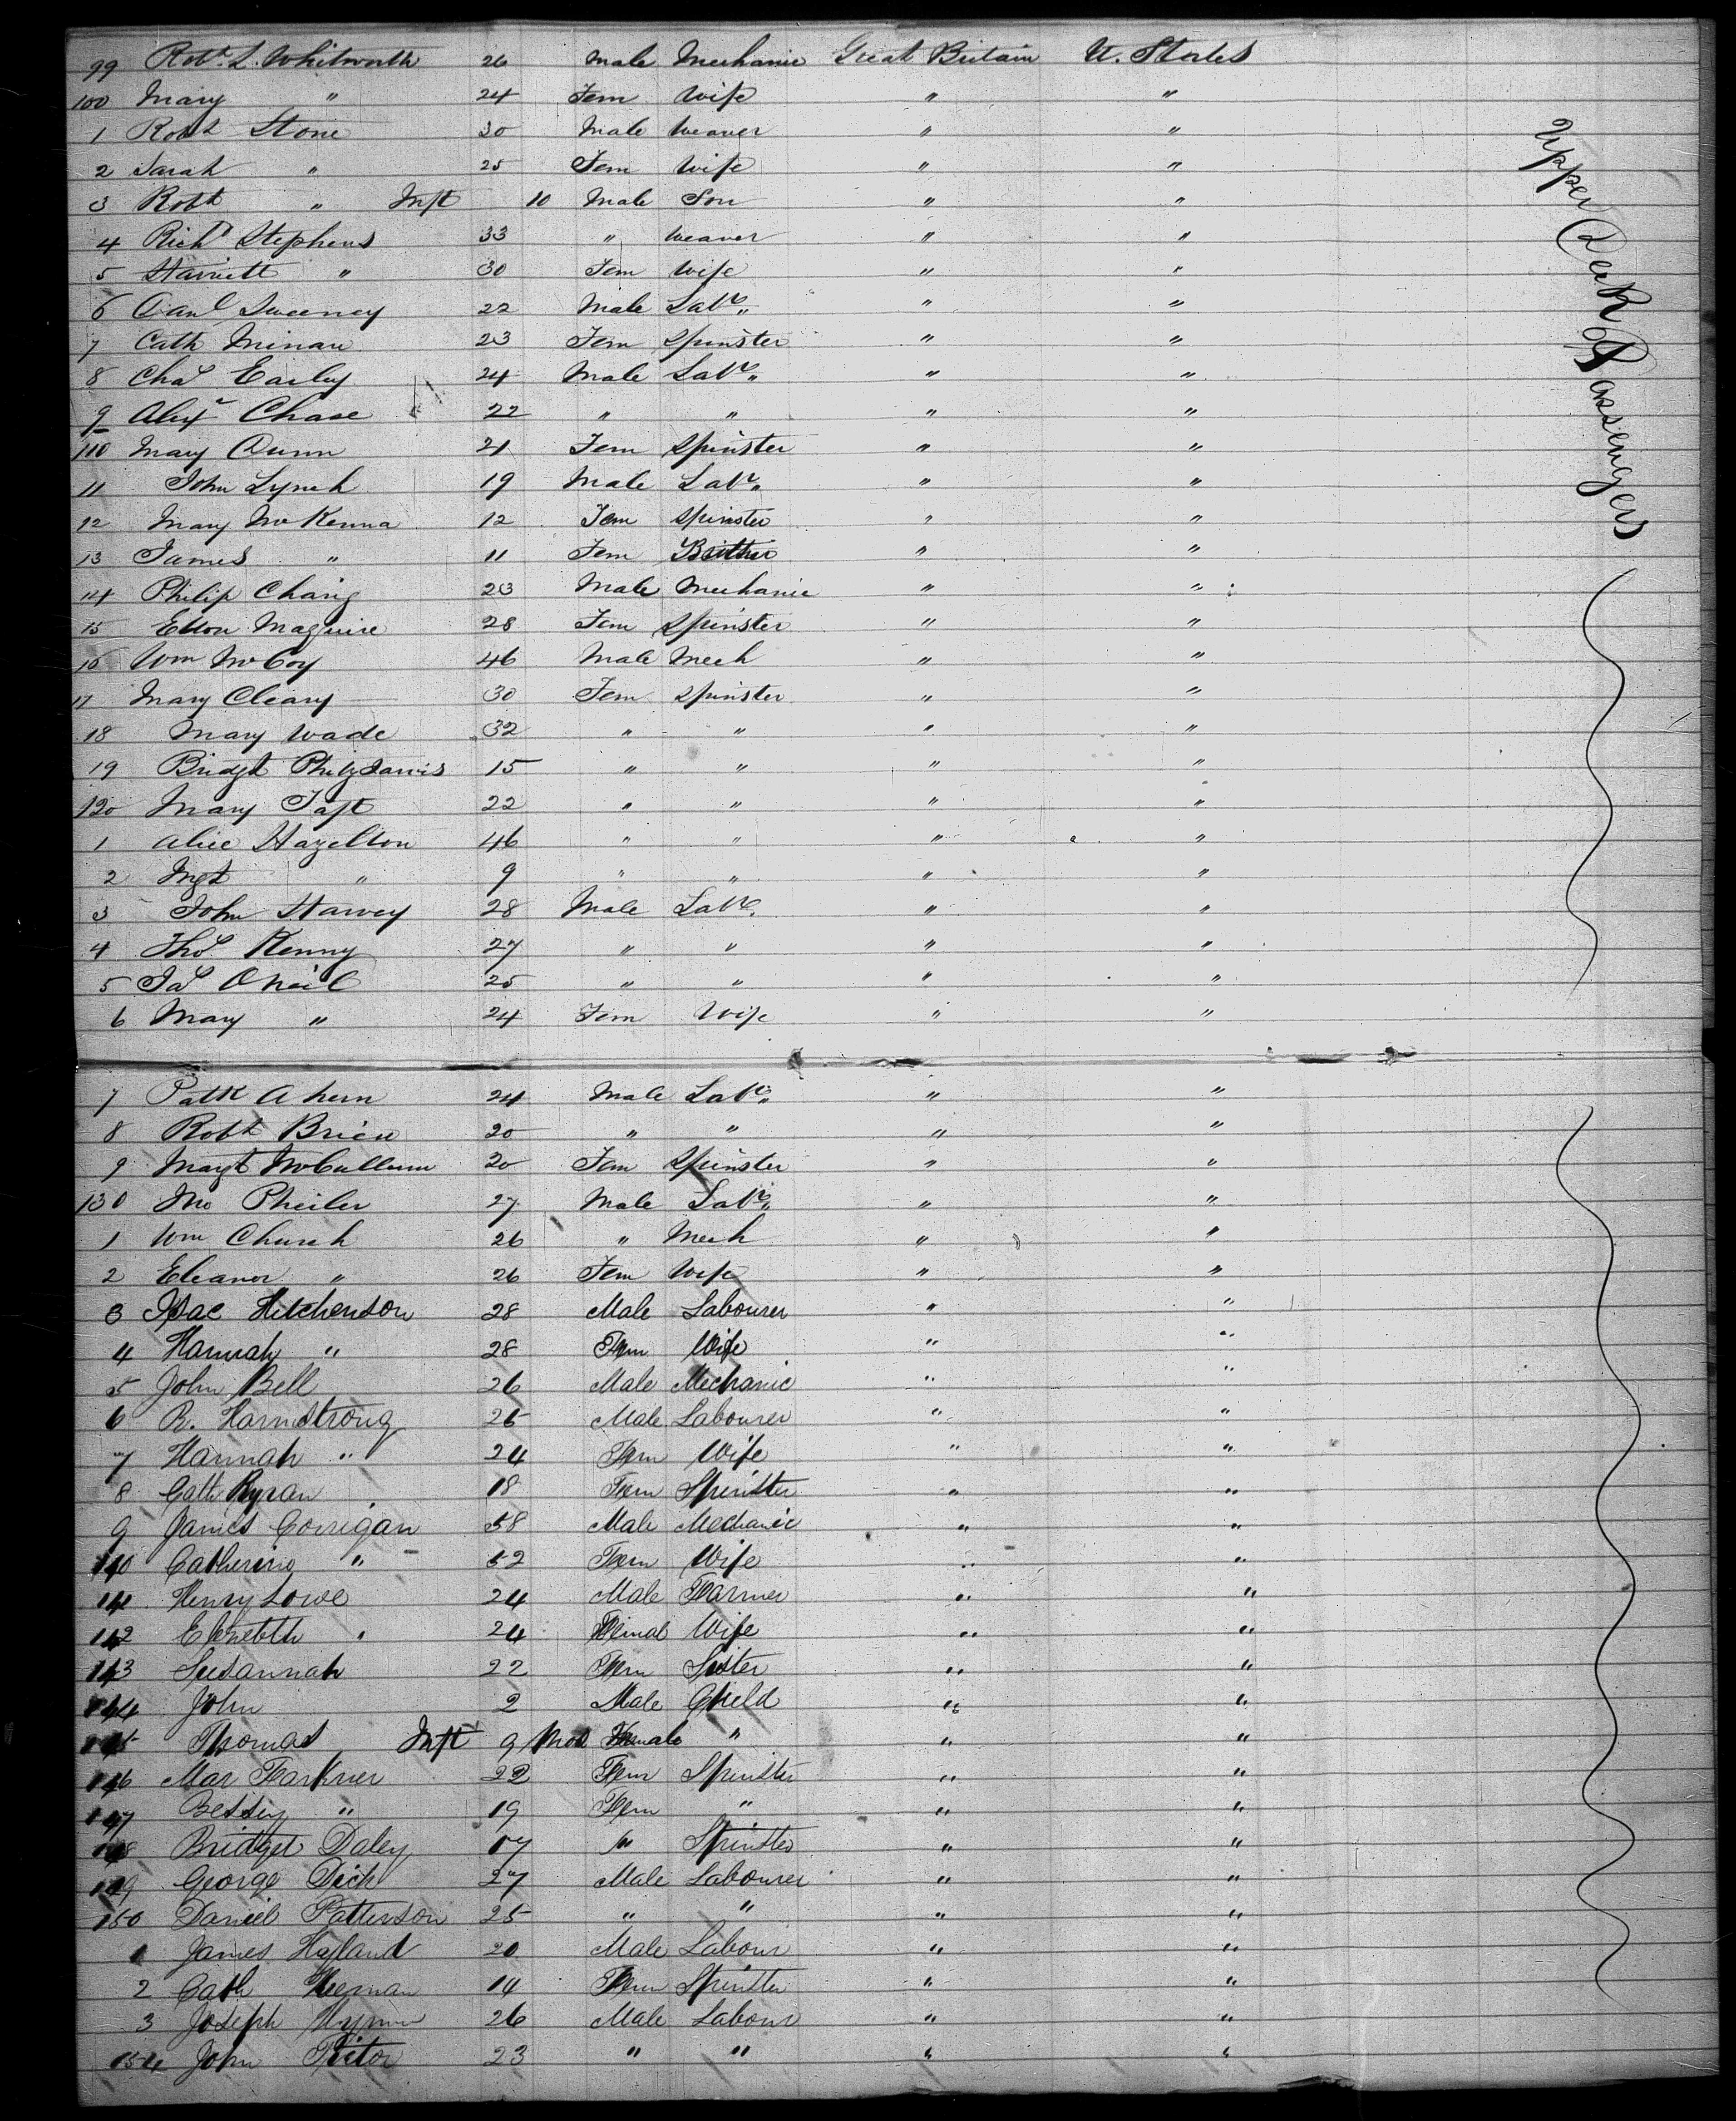 99 Robt. L. Whitworth 26 Male Mechanic Great Britain U. States
100 Mary " 24 Fem Wife " "
1 Robt Stone 30 Male Weaver " "
2 Sarah " 25 Fem Wife " "
3 Robt " Inft 10 Male Son " "
4 Richd Stephens 33 " Weaver " "
5 Harriett " 30 Fem Wife " "
6 Danl Sweeney 22 Male Labr " "
7 Cath Minau 23 Fem Spinster " "
8 Chas Earley 24 Male Labr " "
9 Alexr Chase 22 " " " "
110 Mary Dunn 21 Fem Spinster " "
11 John Lynch 19 Male Labr " "
12 Mary McKenna 12 Fem Spinster " "
13 James " 11 Fem Brother " "
14 Philip Charig 23 Male Mechanic " "
15 Ellon Maguire 28 Fem Spinster " "
16 Wm McCoy 46 Male Mech " "
17 Mary Cleary 30 Fem Spinster " "
18 Mary Wade 32 " " " "
19 Bridgt 15 " " " "
120 Mary Taft 22 " " " "
1 Alice Hazelton 46 " " " "
2 Mgt " 9 " " " "
3 John Harvey 28 Male Labr " "
4 Thos Kenny 27 " " " "
5 Jas O Neil 25 " " " "
6 Mary " 24 Fem Wife " "
7 Patk Ahern 24 Male Labr " "
8 Robt Brien 20 " " " "
9 Margt McCullum 20 Fem Spinster " "
130 Jno Pheiler 27 Male Labr " "
1 Wm Church 26 " Mech " "
2 Eleanor " 26 Fem Wife " "
3 Isac Hitchenson 28 Male Labourer " "
4 Hannah " 28 Fem Wife " "
5 John Bell 26 Male Mechanic " "
6 R. Harmstrong 25 Male Labourer " "
7 Hannah " 24 Fem Wife " "
8 Cath Ryran 18 Fem Spinster " "
9 James Corrigan 58 Male Mechanic " "
140 Catherine " 52 Fem Wife " "
141 Henry Lowe 24 Male Farmer " "
142 Elezebth " 24 Femal Wife " "
143 Susannah 22 Fem Sister " "
144 John 2 Male Child " "
145 Thomas Inft 9 Mos Female " " "
146 Mar Farkner 22 Fem Spinster " "
147 Bessey " 19 Fem " " "
148 Bridget Daley 17 " Spinster " "
149 George Dick 27 Male Labourer " "
150 Daniel Patterson 25 " " " "
1 James Hyland 20 Male Labour " "
2 Cath Heernan 14 Fem Spinster " "
3 Joseph 26 Male Labour " "
154 John Ritor 23 " " " "
Upper Deck Passengers